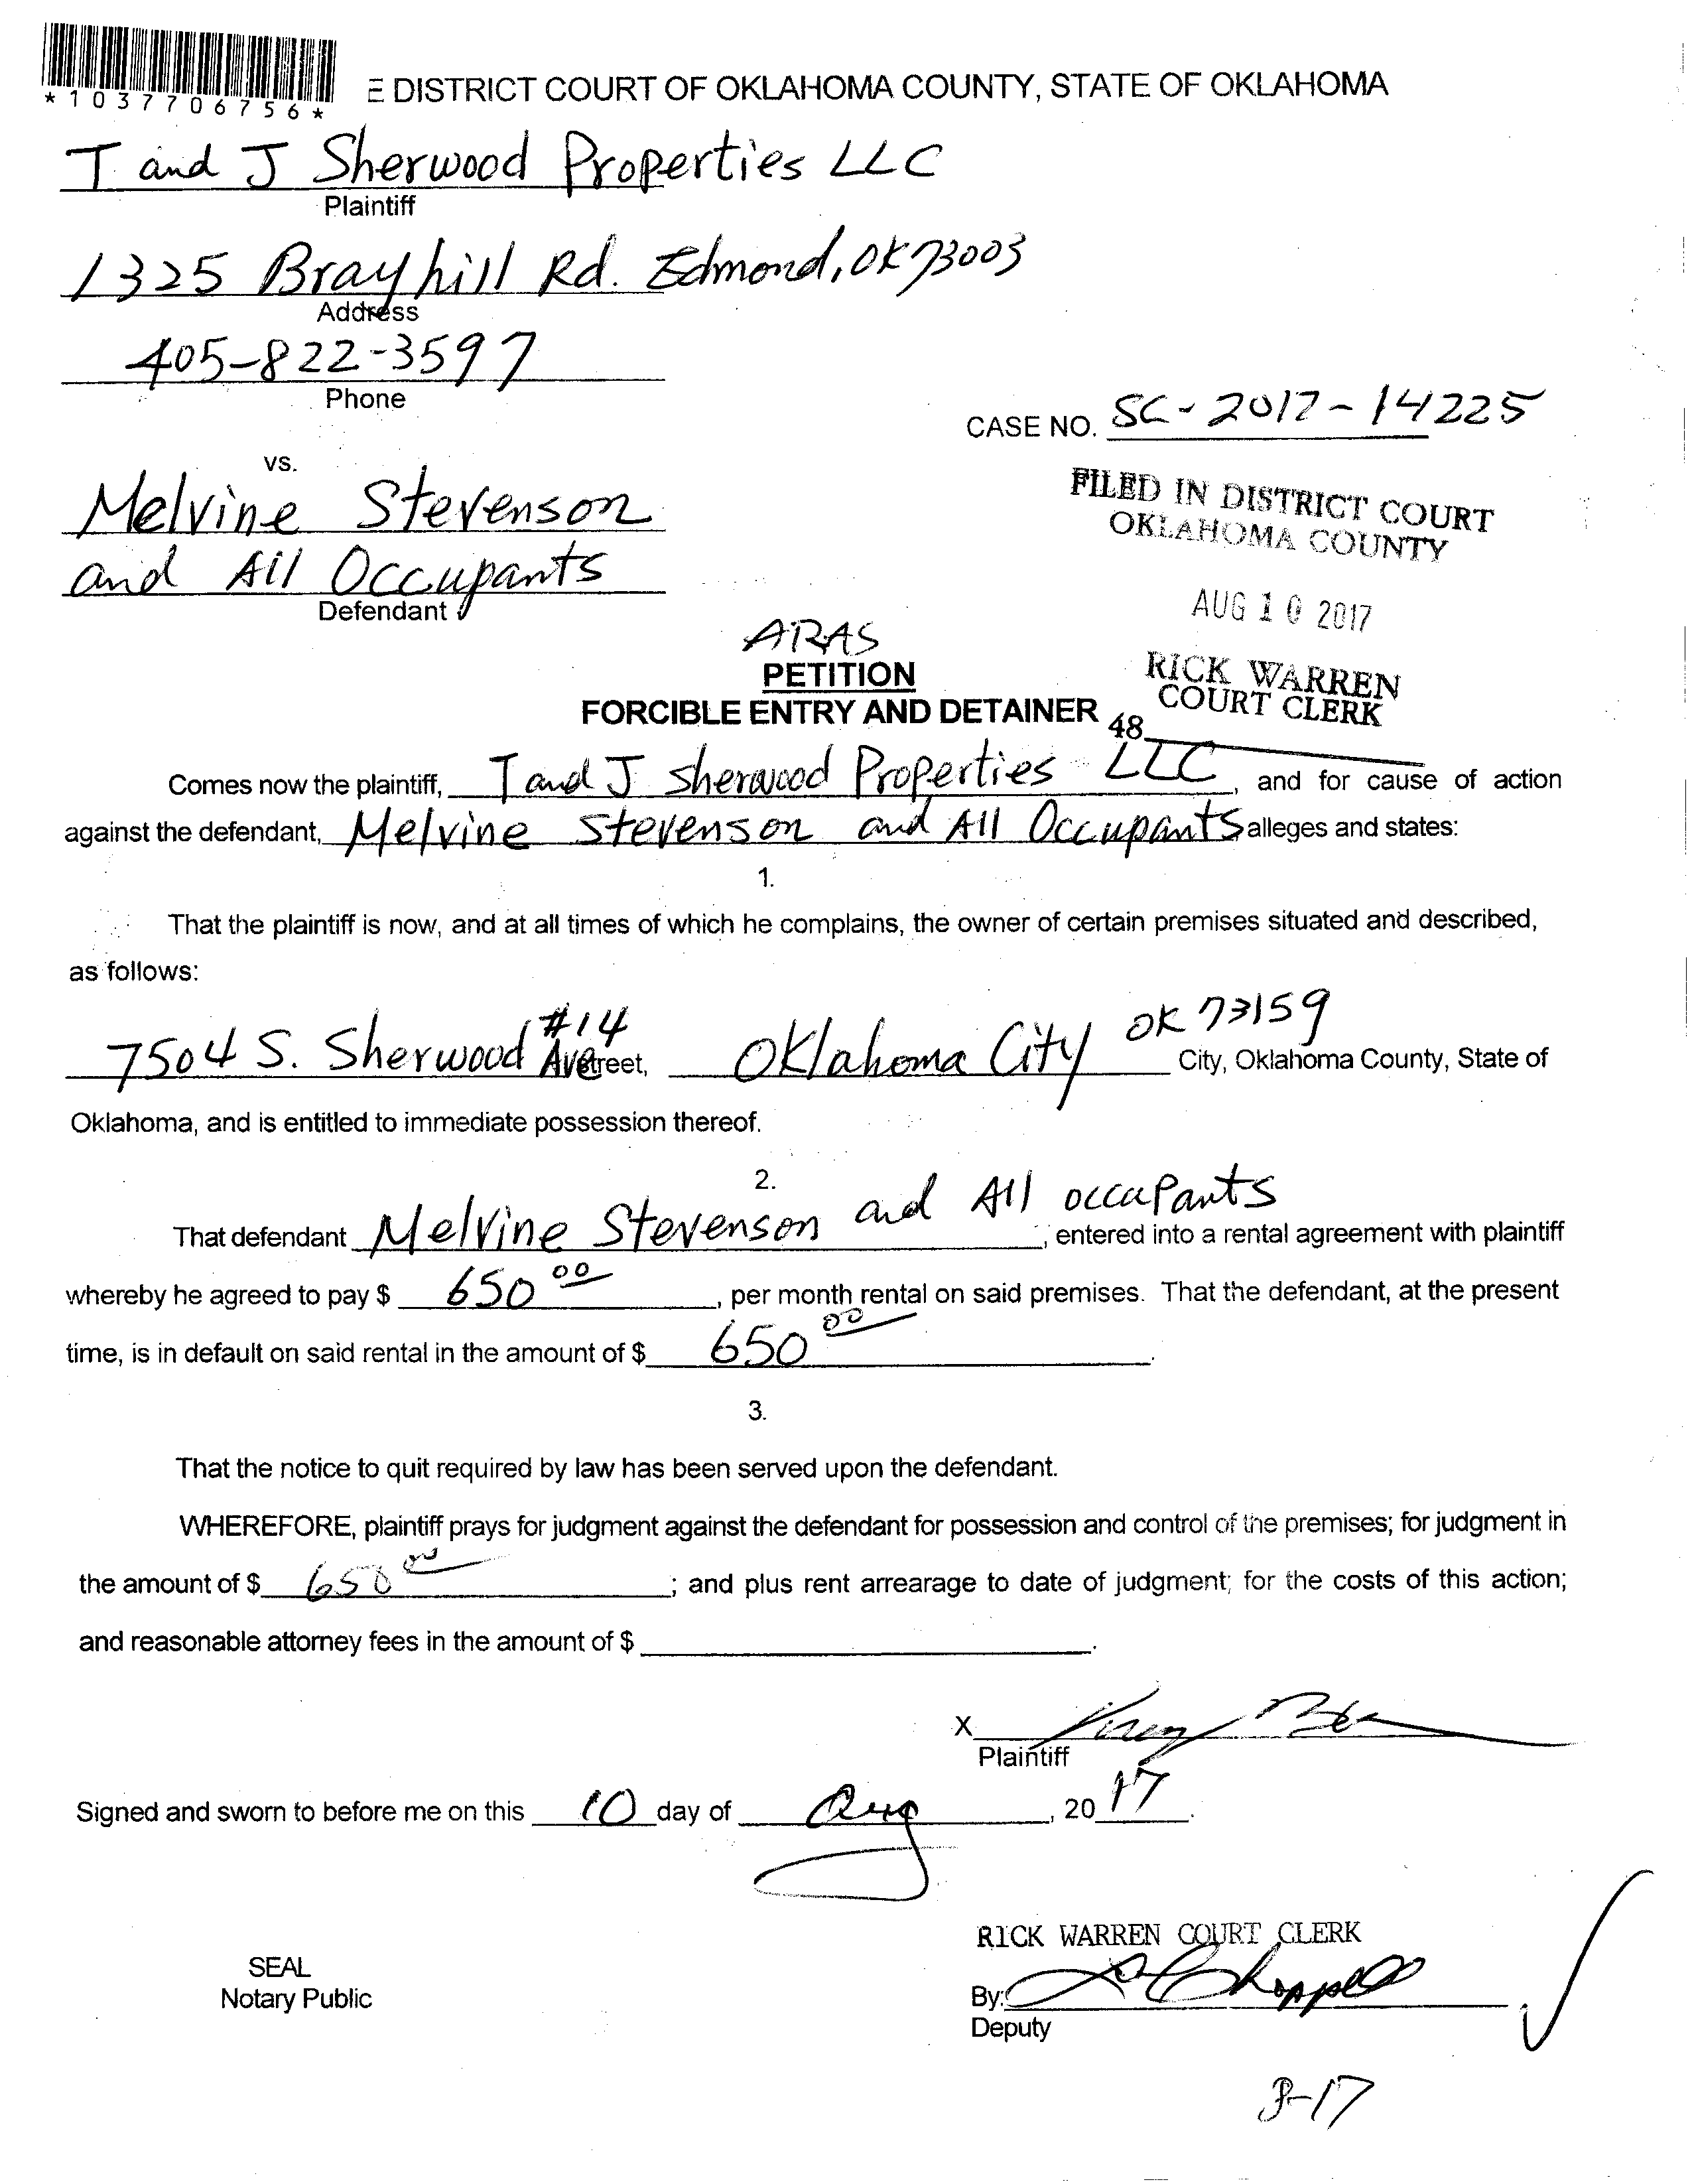 *1037706756*
E DISTRICT COURT OF OKLAHOMA COUNTY, STATE OF OKLAHOMA
T and J Sherwood Properties LLC
Plaintiff
1325 Brayhill Rd. Edmond, OK 73003
Address
405-822-3597
Phone
CASE NO. SC-2017-14225
vs.
Melvine Stevenson
and All Occupants
Defendant
FILED IN DISTRICT COURT
OKLAHOMA COUNTY
AUG 10 2017
RICK WARREN
COURT CLERK
48
ARAS
PETITION
FORCIBLE ENTRY AND DETAINER
Comes now the plaintiff, T and J Sherwood Properties LLC, and for cause of action
against the defendant, Melvine Stevenson and All Occupants alleges and states:
1.
That the plaintiff is now, and at all times of which he complains, the owner of certain premises situated and described,
as follows:
7504 S. Sherwood Ave #14 Street, Oklahoma City OK 73159 City, Oklahoma County, State of
Oklahoma, and is entitled to immediate possession thereof.
2.
That defendant Melvine Stevenson and All occupants, entered into a rental agreement with plaintiff
whereby he agreed to pay $ 650 00, per month rental on said premises. That the defendant, at the present
time, is in default on said rental in the amount of $ 650 00.
3.
That the notice to quit required by law has been served upon the defendant.
WHEREFORE, plaintiff prays for judgment against the defendant for possession and control of the premises; for judgment in
the amount of $ 650 00; and plus rent arrearage to date of judgment; for the costs of this action;
and reasonable attorney fees in the amount of $ .
X
Plaintiff
Signed and sworn to before me on this 10 day of Aug, 2017.
RICK WARREN COURT CLERK
SEAL
Notary Public
By:
Deputy